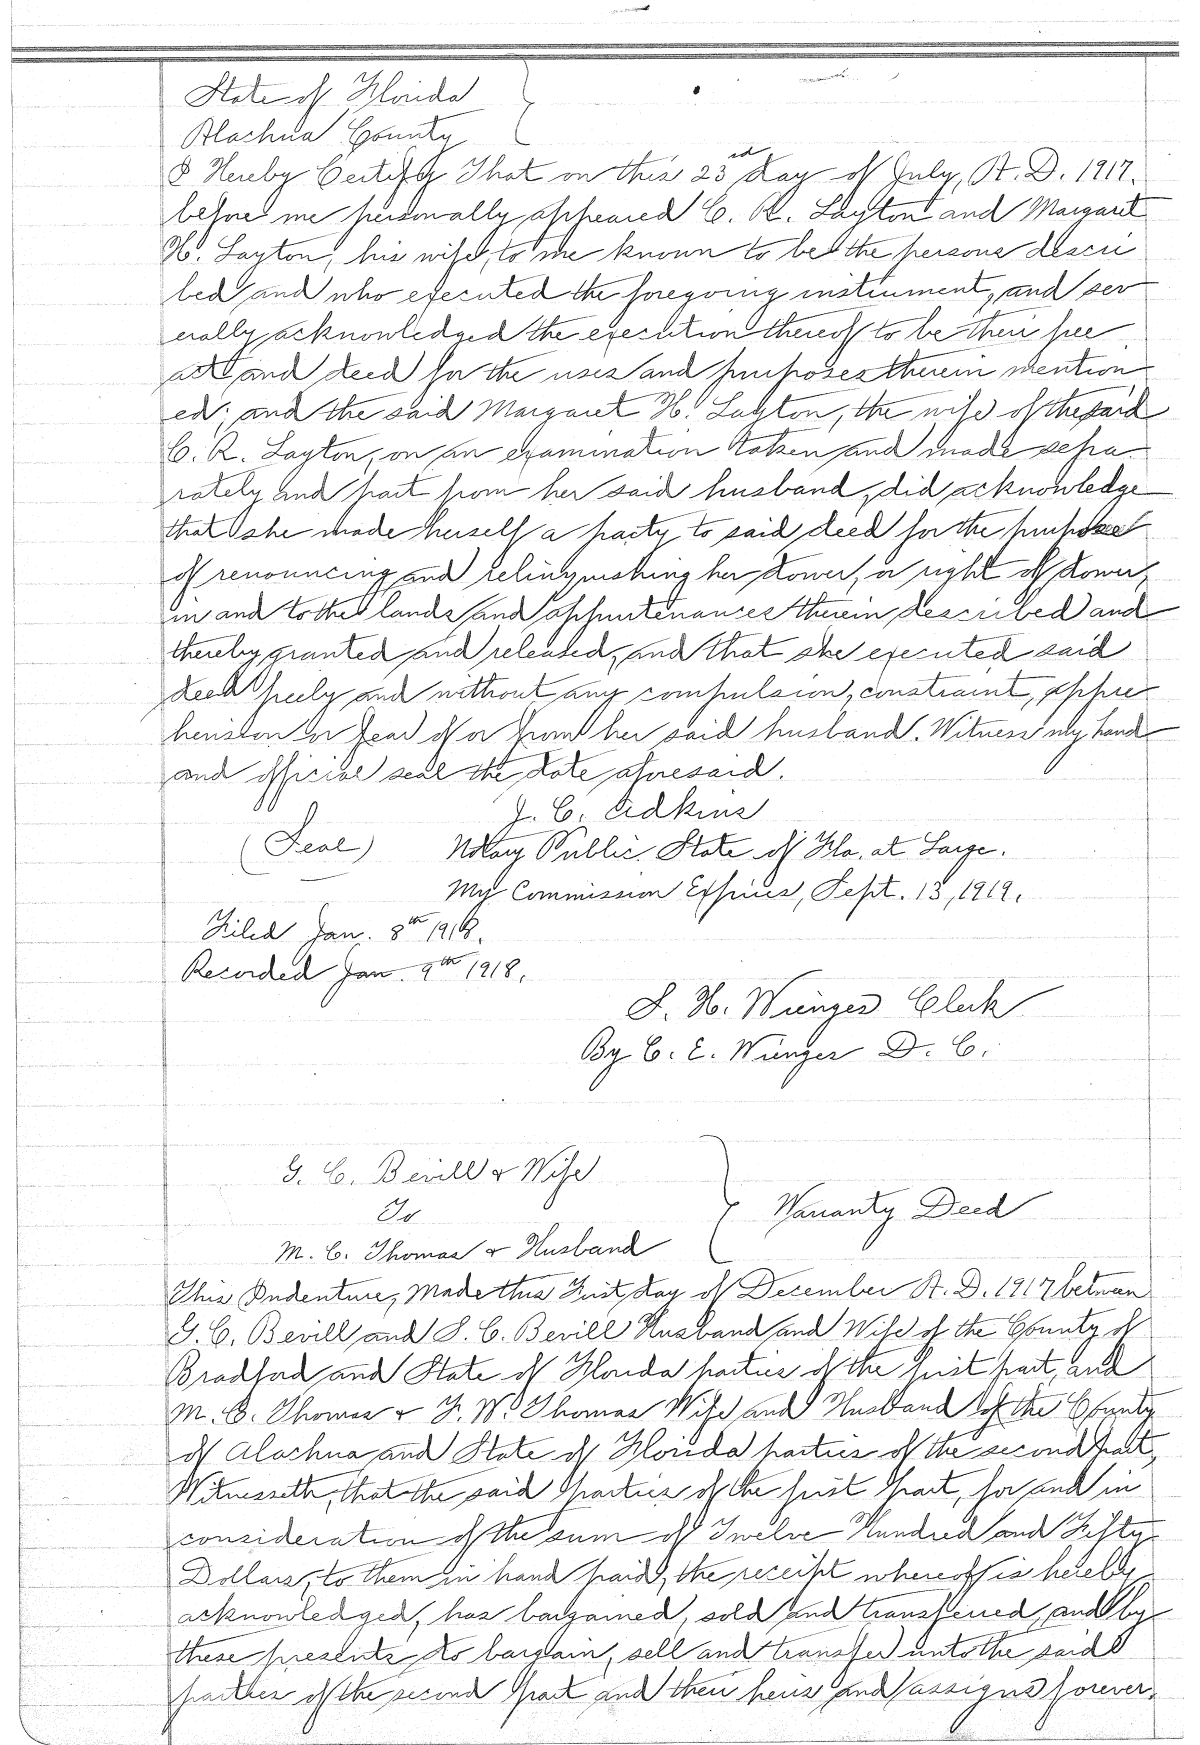 State of Florida
Alachua County
I Hereby Certify That on this 23rd day of July, A.D. 1917.
before me personally appeared C. R. Layton and Margaret
H. Layton, his wife, to me known to be the persons descri
bed and who executed the foregoing instrument, and sev
erally acknowledged the execution thereof to be their free
act and deed for the uses and purposes therein mention
ed; and the said Margaret H. Layton, the wife of the said
C. R. Layton, on an examination taken and made sepa-
rately and part from her said husband, did acknowledge
that she made herself a party to said deed for the purpose
of renouncing and relinquishing her dower, or right of dower,
in and to the lands and appurtenances therein described and
thereby granted and released, and that she executed said
deed freely and without any compulsion, constraint, appre
hension or fear of or from her said husband. Witness my hand
and official seal the date aforesaid.
J. C. Adkins
(Seal) Notary Public State of Fla. at Large.
My Commission Expires, Sept. 13, 1919.
Filed Jan. 8th 1918.
Recorded Jan. 9th 1918.
S. H. Wienges Clerk
By C. E. Wienges D. C.
G. C. Bevill & Wife
To
Warranty Deed
M. C. Thomas & Husband
This Indenture, Made this First day of December A. D. 1917 between
G. C. Bevill and S. C. Bevill Husband and Wife of the County of
Bradford and State of Florida parties of the first part, and
M. C. Thomas & F. W. Thomas Wife and Husband of the County
of Alachua and State of Florida parties of the second part,
Witnesseth, that the said parties of the first part, for and in
consideration of the sum of Twelve Hundred and Fifty
Dollars, to them in hand paid, the receipt whereof is hereby
acknowledged, has bargained, sold and transferred, and by
these presents do bargain, sell and transfer unto the said
parties of the second part and their heirs and assigns forever.